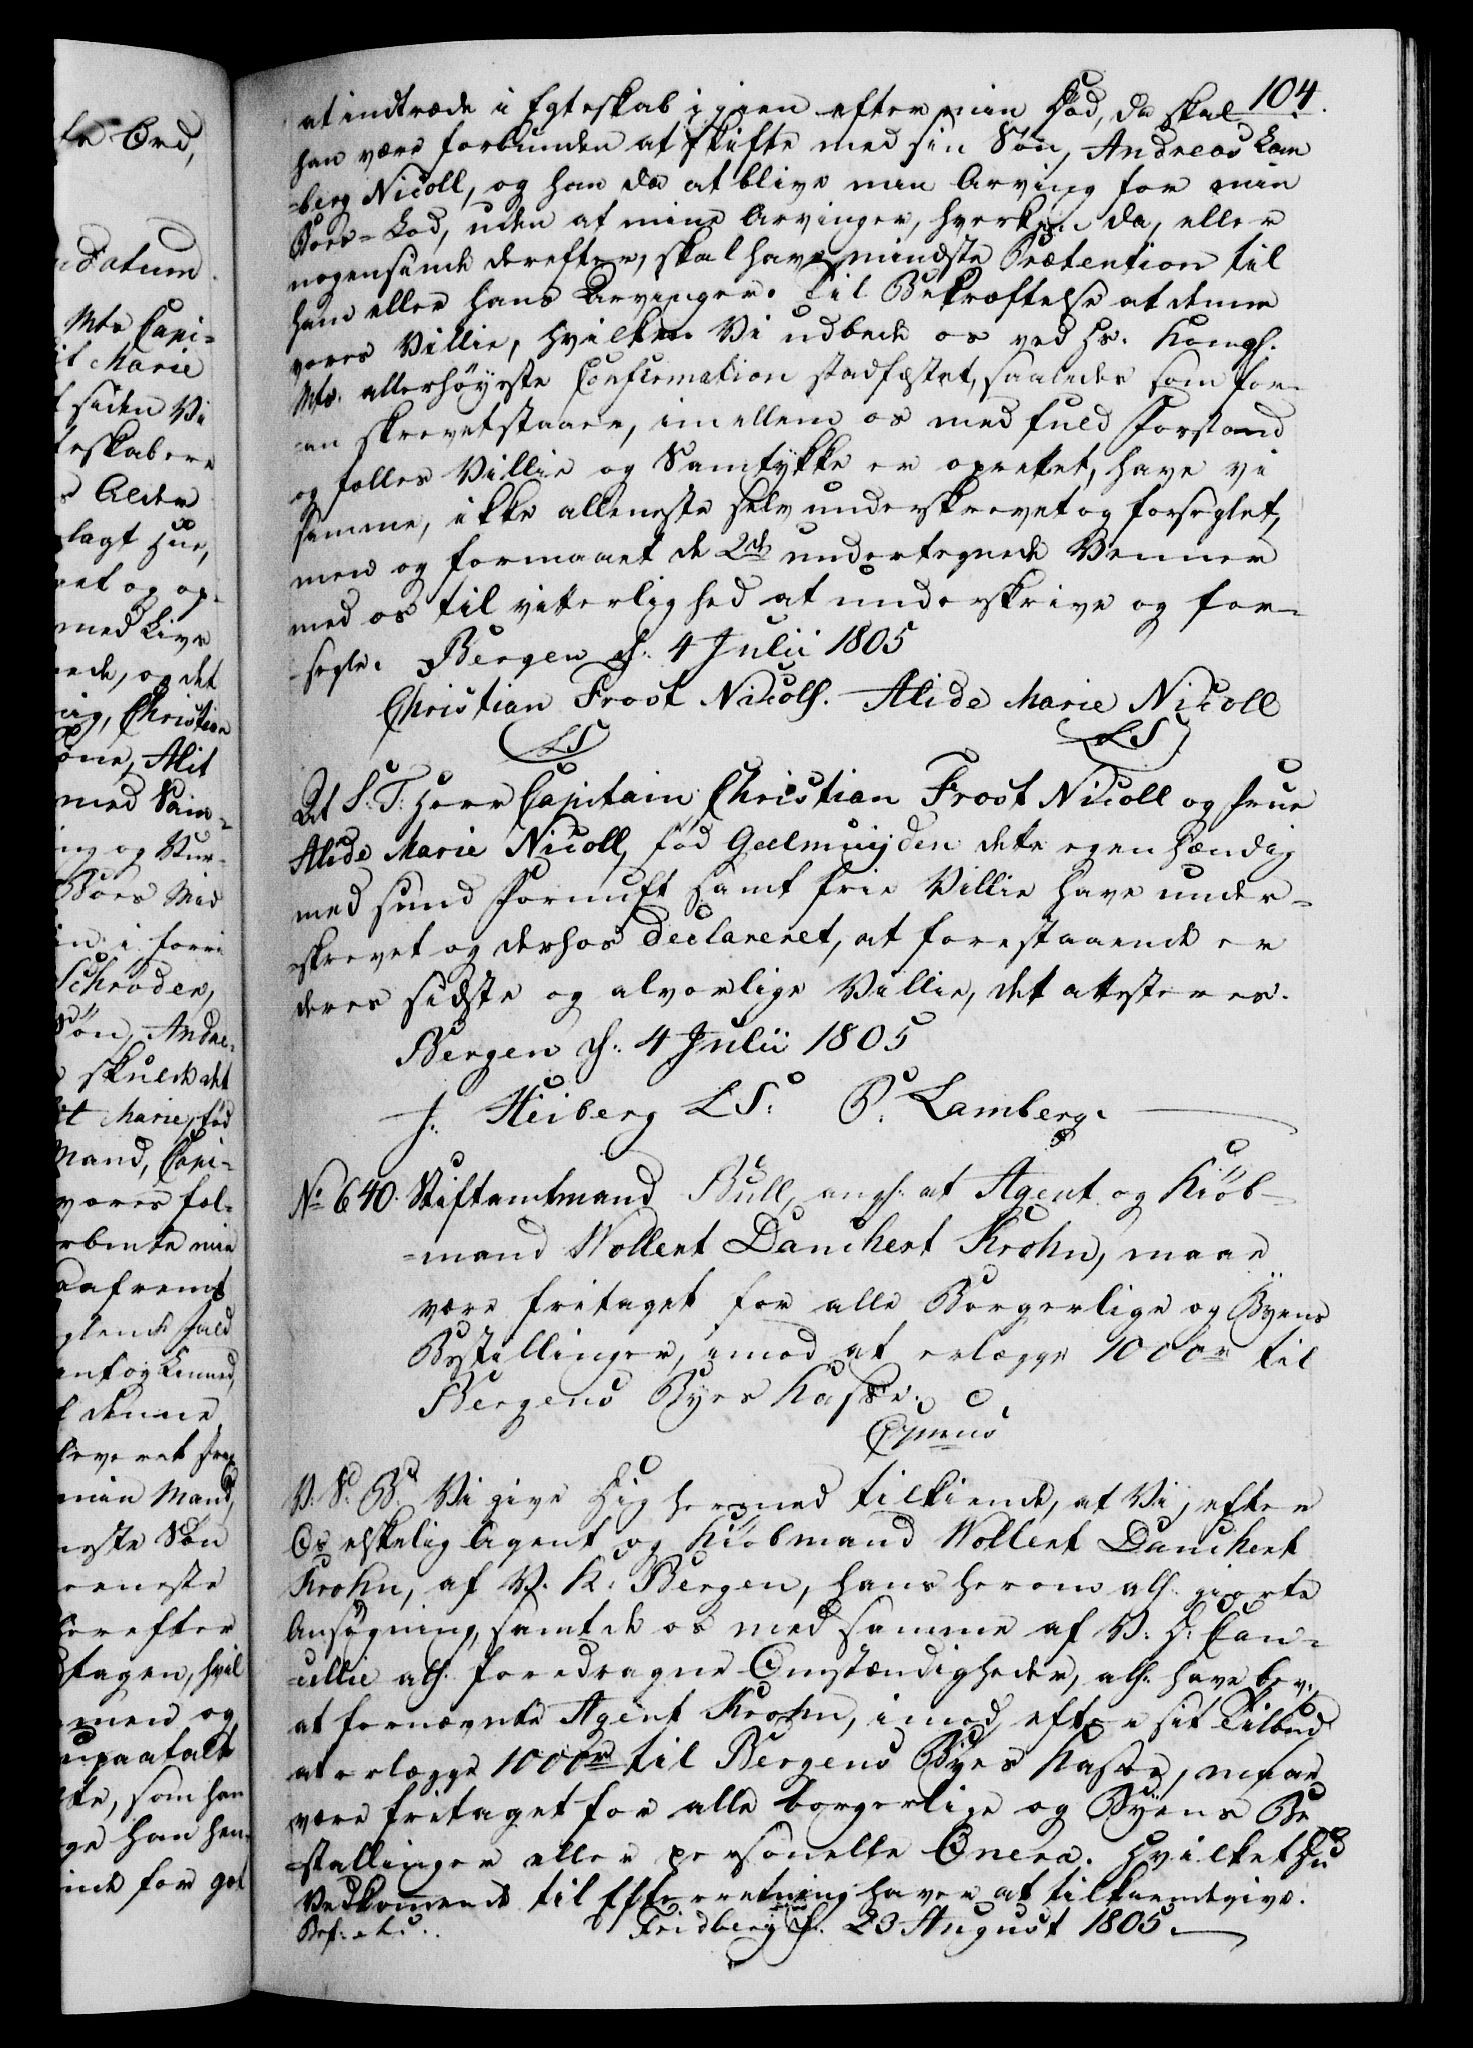 104.
at indtræde i Egteskab igien efter min Død, da skal
han være forbunden at skifte med sin Søn, Andreas Lam
=berg Nicoll, og han da at blive min Arving for min
Boes=Lod, uden at mine Arvinger, hverken da, eller
nogensinde derefter, skal have mindste Prætention til
ham eller hans Arvinger. Til Bekræftelse at denne
vores Villie, hvilken Vi udbede os ved Hs. Kongl.
Mts. allerhøyeste Confirmation stadfæstet, saaledes som for-
=an skrevet staaer, imellem os med fuld Forstand
og fælles Villie og Samtykke er oprettet, have vi
samme, ikke alleneste selv underskrevet og forseglet,
men og formaaet de 2de undertegnede Venner
med os til vitterlighed at underskrive og for=
=segle. Bergen d. 4 Julii 1805
Christian Frost Nicoll. Alide Marie Nicoll
LS LS
At S: T: Herr Capitain Christian Frost Nicoll og Frue
Alide Marie Nicoll, fød Geelmuyden dette egenhændig
med sund Fornuft samt frie Villie have under=
=skrevet og derhos declareret, at forestaaende er
deres sidste og alvorlige Villie, det attesteres.
Bergen d. 4 Julii 1805
J. Heiberg LS. P. Lamberg.
No 640. Stiftamtmand Bull, angl. at Agent og Kiøb=
=mand Wollert Danchert Krohn, maae
være fritaget for alle Borgerlige og Byens
Bestillinger, imod at erlægge 1000 rd til
Bergens Byes Kasse.
V. S. B. Vi give Dig hermed tilkiende, at Vi, efter
Os elskelig Agent og Kiøbmand Wollert Danchert
Krohn, af V. K. Bergen, hans herom all. giorte
Ansøgning, samt de os med samme af V. D. Can=
=cellie all. foredragne Omstændigheder, all. have bev.,
at fornævnte Agent Krohn, imod, efter sit Tilbud
at erlægge 1000 rd til Bergens Byes Kasse, maae
være fritaget for alle borgerlige og Byens Be
=stillinger eller personelle Onera. Hvilket Du
Vedkommende til Efterretning haver at tilkiendegive.
Bef. etc. Fridberg d. 23 August 1805.